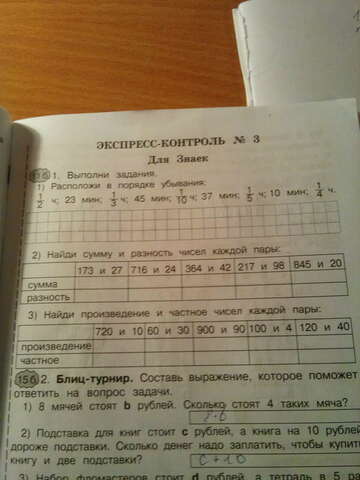 ЭКСПРЕСС-КОНТРОЛЬ № 3
Для Знаек
1. Выполни задания.
1) Расположи в порядке убывания:
1/2 ч; 23 мин; 1/3 ч; 45 мин; 1/10 ч; 37 мин; 1/5 ч; 10 мин; 1/4 ч.
2) Найди сумму и разность чисел каждой пары:
173 и 27 716 и 24 364 и 42 217 и 98 845 и 20
сумма
разность
3) Найди произведение и частное чисел каждой пары:
720 и 10 60 и 30 900 и 90 100 и 4 120 и 40
произведение
частное
156 2. Блиц-турнир. Составь выражение, которое поможет
ответить на вопрос задачи.
1) 8 мячей стоят b рублей. Сколько стоят 4 таких мяча?
2) Подставка для книг стоит c рублей, а книга на 10 рублей
дороже подставки. Сколько денег надо заплатить, чтобы купить
книгу и две подставки?
c + 10
3) Набор фломастеров стоит d рублей, а тетрадь в 5 ра